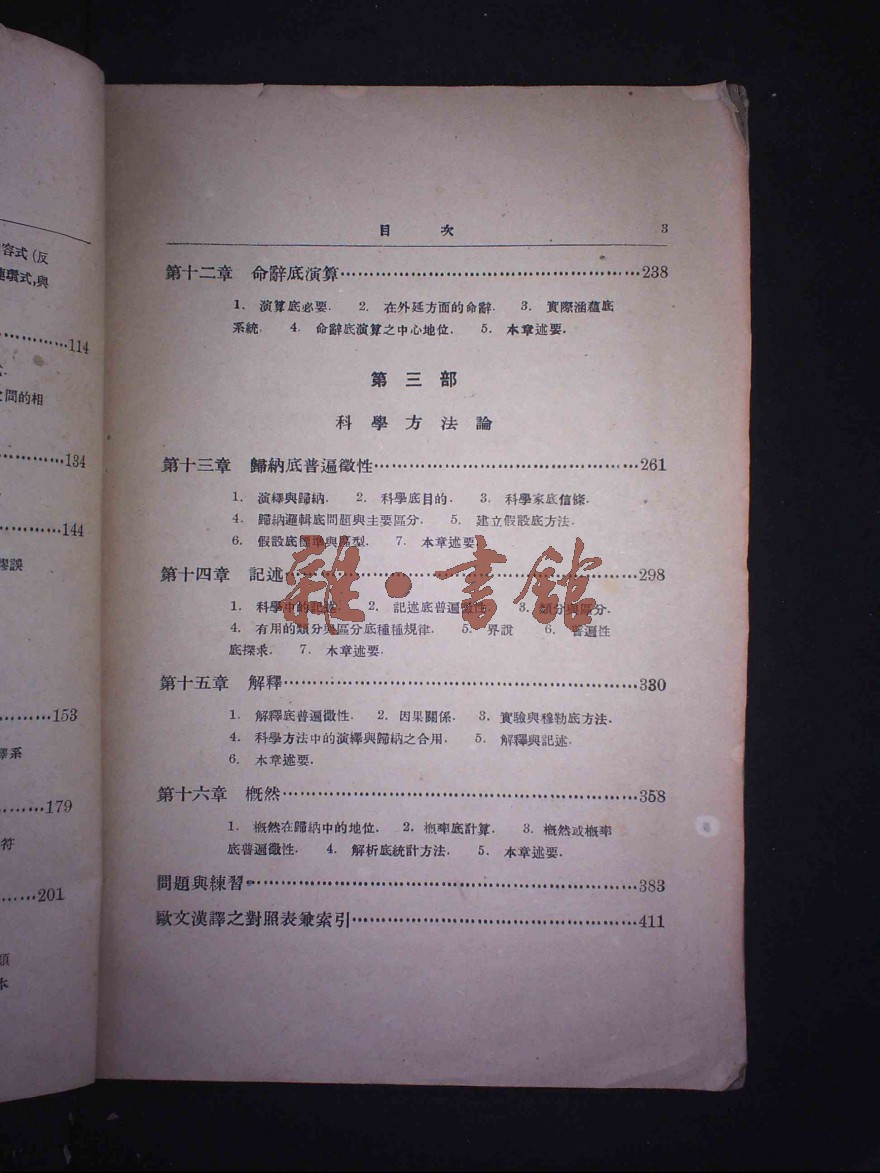 容式(反
連瓆式,與
114
之間的相
134
144
謬誤
153
繹系
179
符
201
類
本
目 次 3
第十二章 命辭底演算 238
1. 演算底必要. 2. 在外延方面的命辭. 3. 實際涵蘊底
系統. 4. 命辭底演算之中心地位. 5. 本章述要.
第三部
科學方法論
第十三章 歸納底普遍徵性 261
1. 演繹與歸納. 2. 科學底目的. 3. 科學家底信條.
4. 歸納邏輯底問題與主要區分. 5. 建立假設底方法.
6. 假設底標準與 型. 7. 本章述要.
第十四章 記述 298
1. 科學中的記述. 2. 記述底普遍徵性. 3. 類分與區分.
4. 有用的類分與區分底種種規律. 5. 界說 6. 普遍性
底探求. 7. 本章述要.
第十五章 解釋 330
1. 解釋底普遍徵性. 2. 因果關係. 3. 實驗與穆勒底方法.
4. 科學方法中的演繹與歸納之合用. 5. 解釋與記述.
6. 本章述要.
第十六章 概然 358
1. 概然在歸納中的地位. 2. 概率底計算. 3. 概然或概率
底普遍徵性. 4. 解析底統計方法. 5. 本章述要.
問題與練習 383
歐文漢譯之對照表兼索引 411
雜·書館